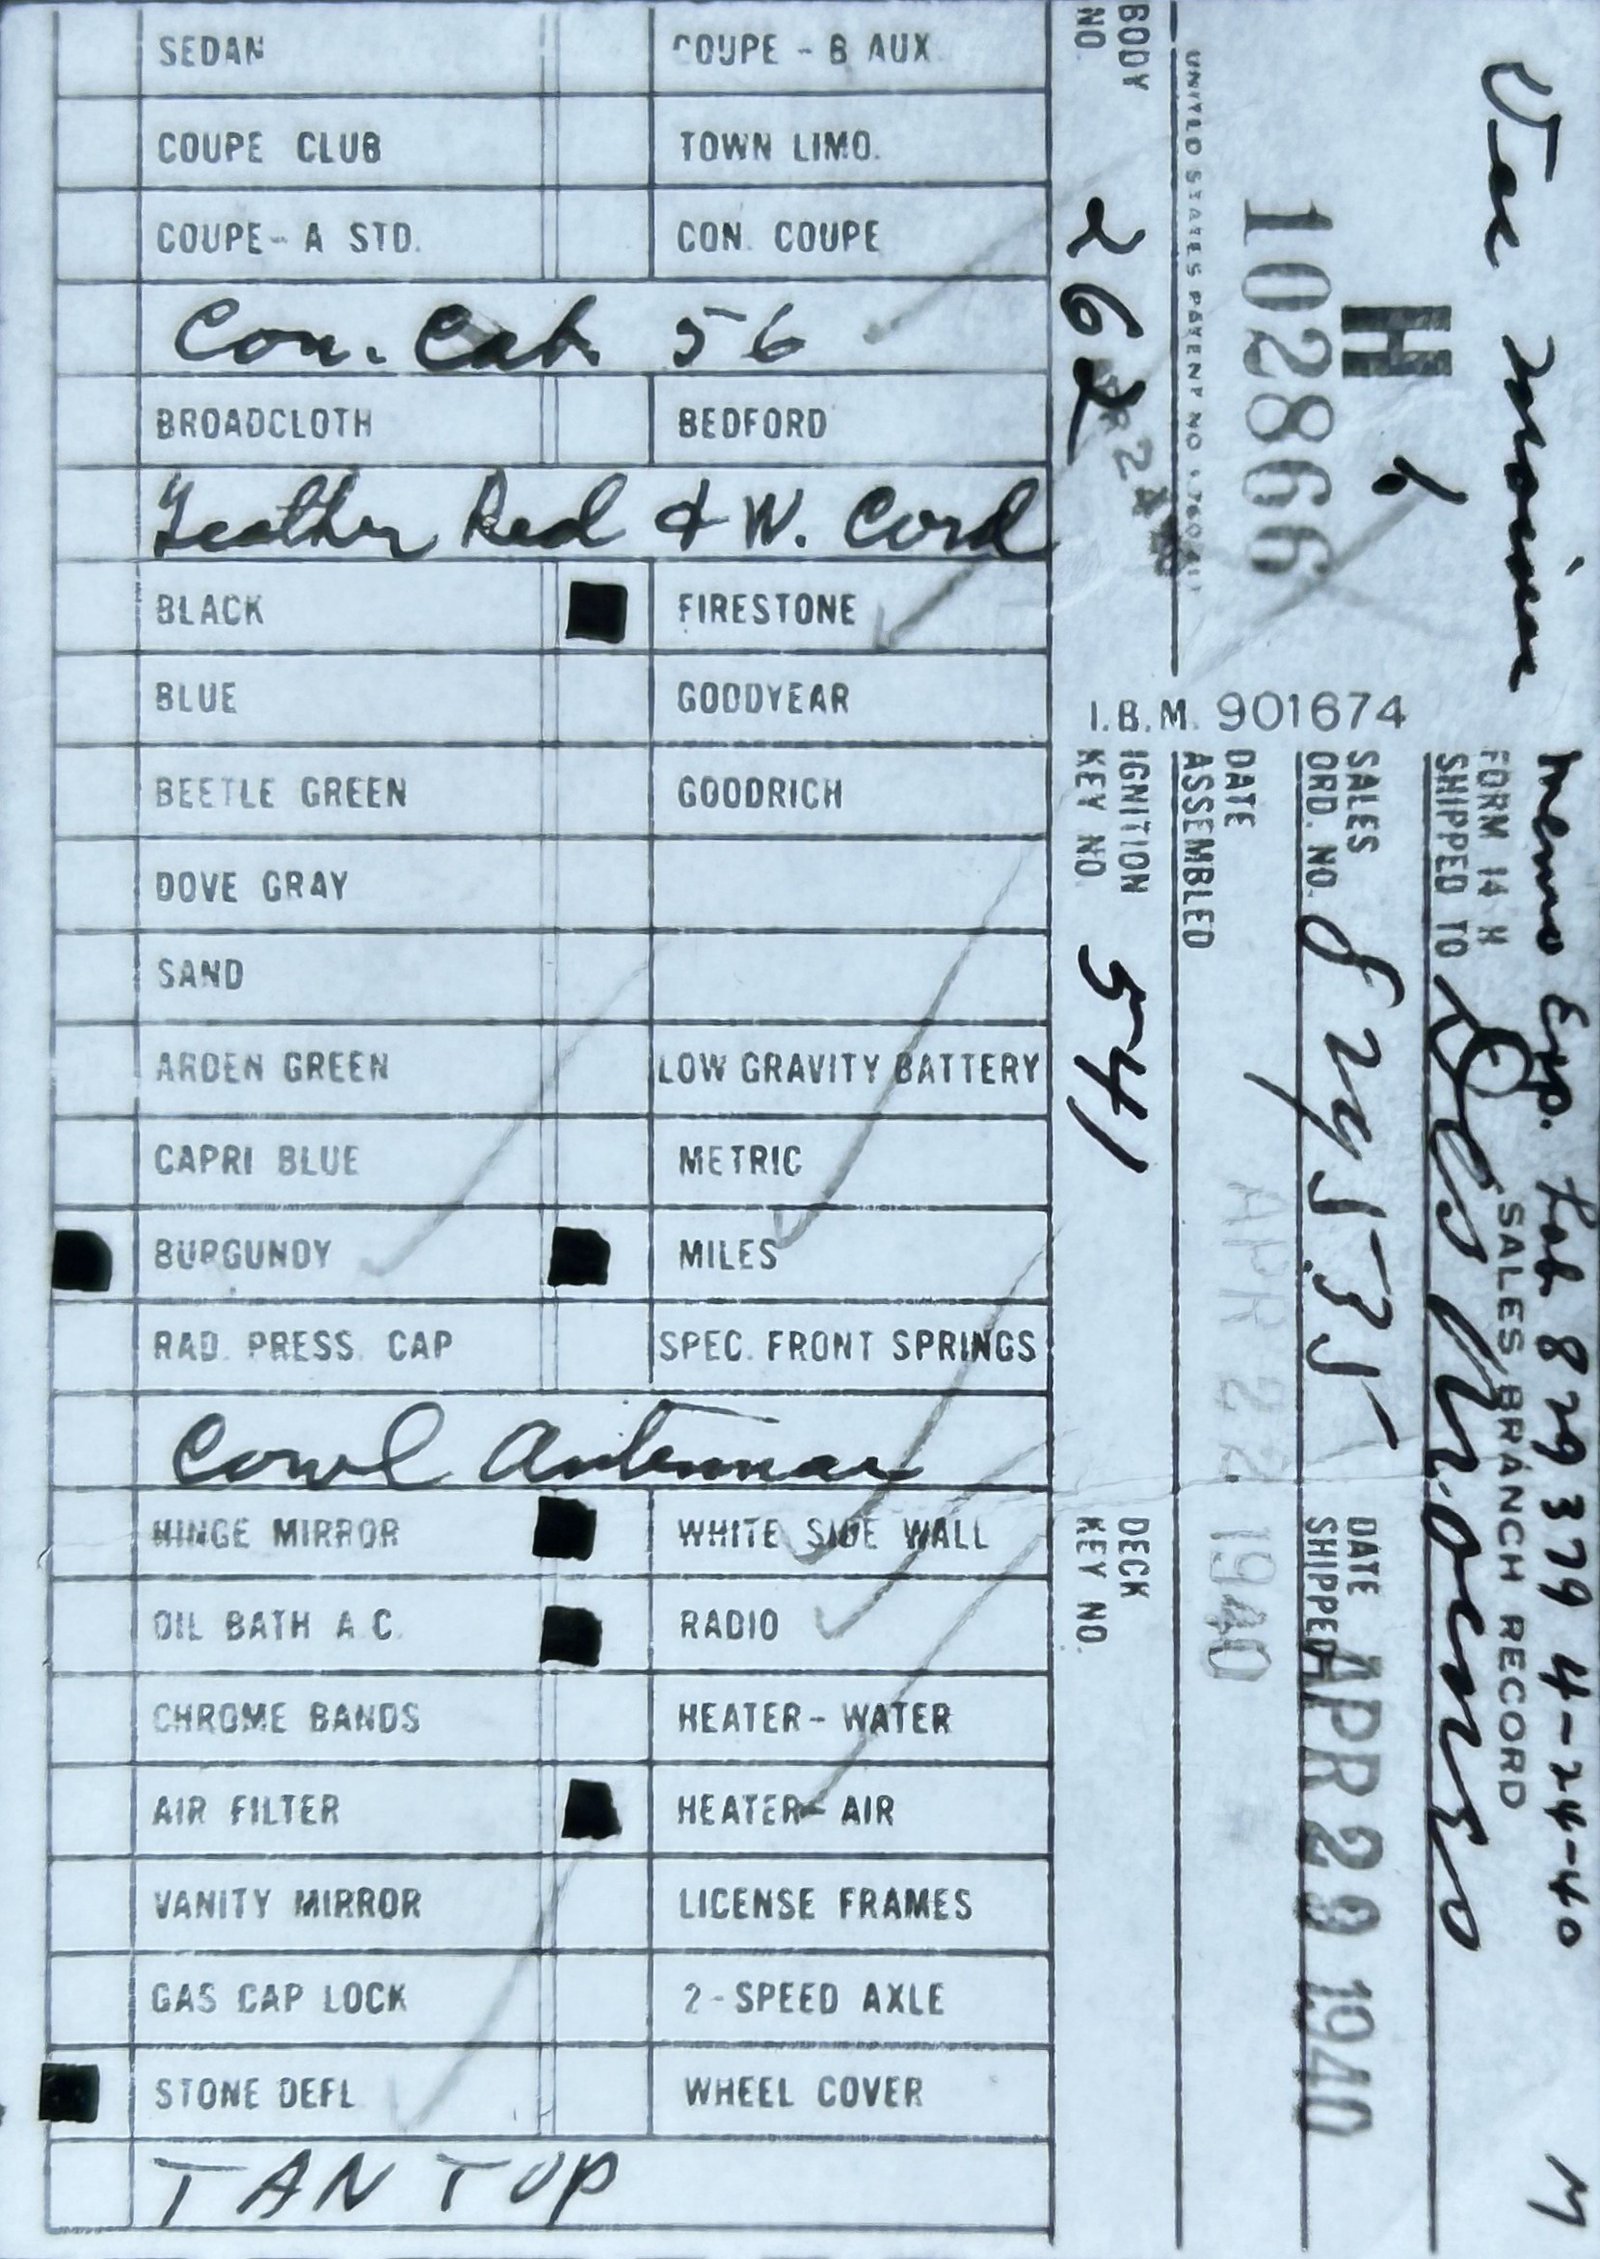 SEDAN COUPE - B AUX.
COUPE CLUB TOWN LIMO.
COUPE- A STD. CON. COUPE
Con. Cab. 56
BROADCLOTH BEDFORD
Leather Red & W. Cord
BLACK FIRESTONE
BLUE GOODYEAR
BEETLE GREEN GOODRICH
DOVE GRAY
SAND
ARDEN GREEN LOW GRAVITY BATTERY
CAPRI BLUE METRIC
BURGUNDY MILES
RAD. PRESS. CAP SPEC. FRONT SPRINGS
Cowl Antennae
HINGE MIRROR WHITE SIDE WALL
OIL BATH A.C. RADIO
CHROME BANDS HEATER- WATER
AIR FILTER HEATER- AIR
VANITY MIRROR LICENSE FRAMES
GAS CAP LOCK 2-SPEED AXLE
STONE DEFL. WHEEL COVER
TAN TOP
Des Moines
Memo Exp. 829379 4-24-40
M
FORM 14 H SALES BRANCH RECORD
SHIPPED TO
H
102866
SALES ORD. NO. DATE SHIPPED APR 29 1940
DATE ASSEMBLED APR 22 1940
UNITED STATES PATENT NO.
I.B.M. 901674
BODY NO. 262
IGNITION KEY NO. 541
DECK KEY NO.